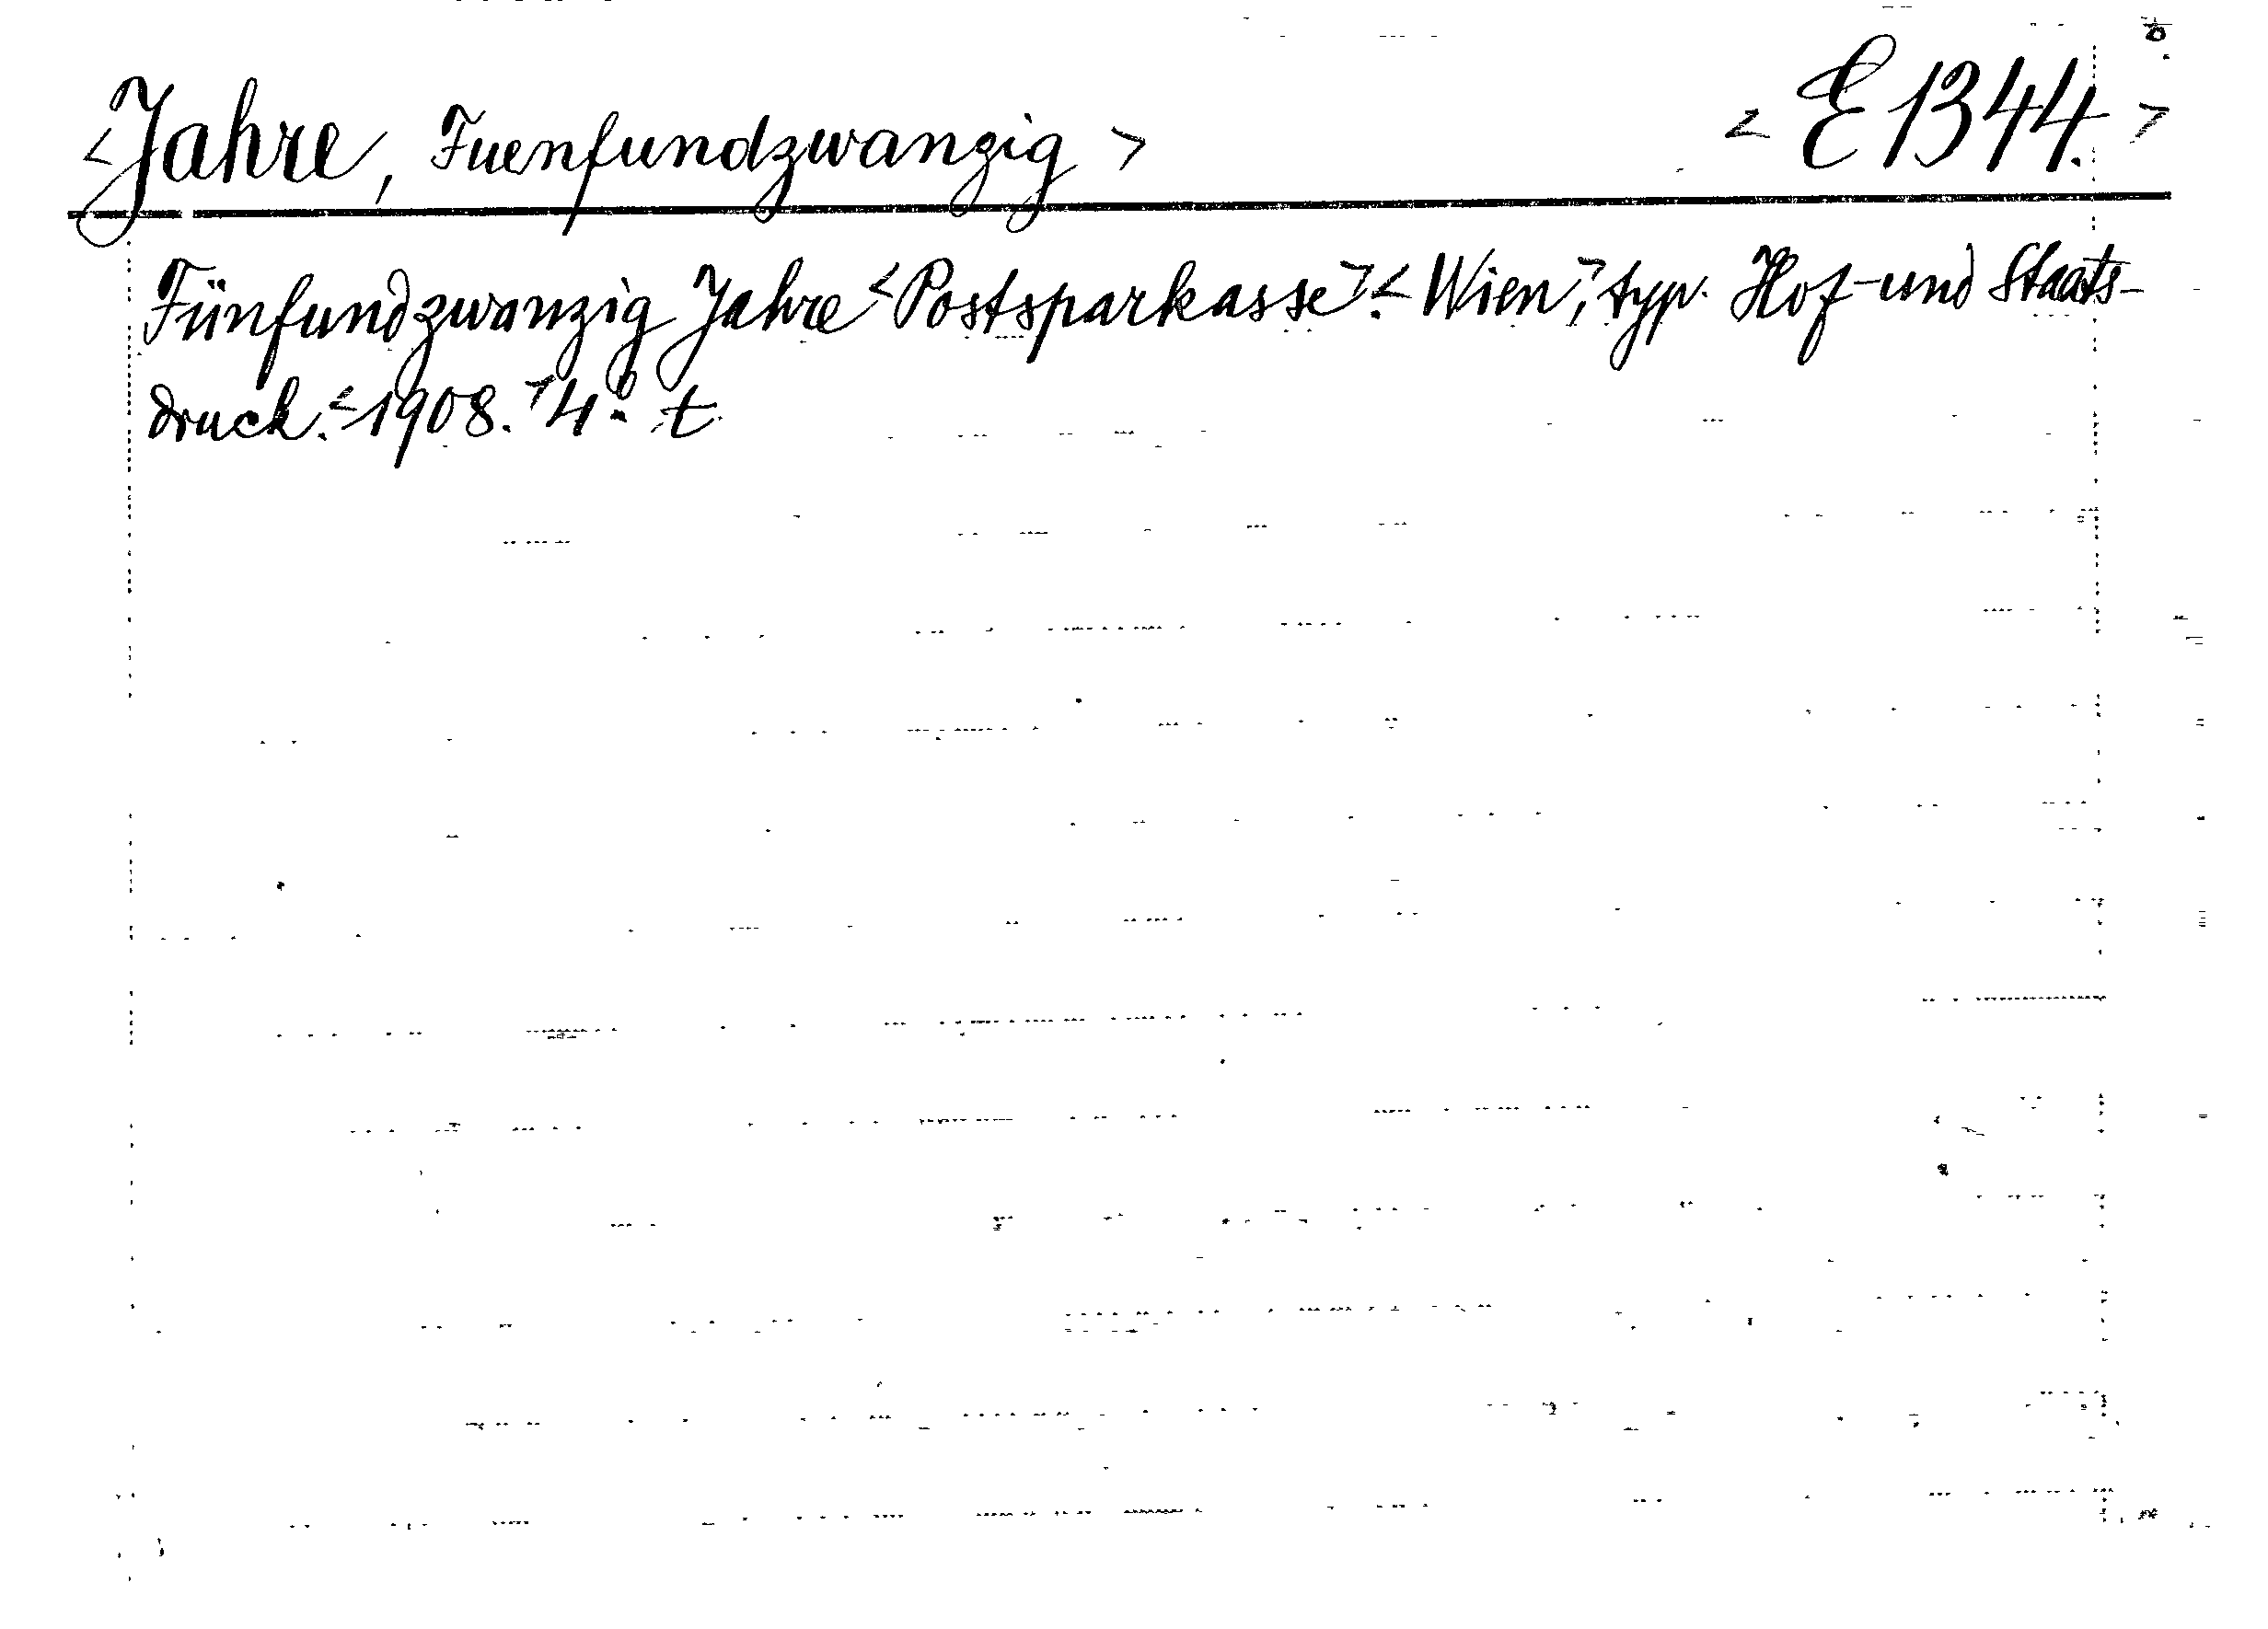 <Jahre, Fuenfundzwanzig> <E1344.>
Fünfundzwanzig Jahre <Postsparkasse>. <Wien,> typ. Hof- und Staats-
druck. <1908.> 4º. t.